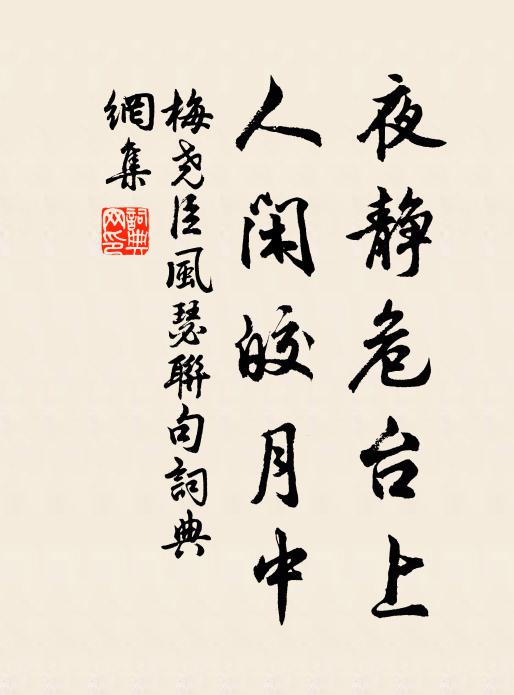 夜静危台上
人闲皎月中
梅尧臣風瑟聯句詞典
網集
詞典
网印